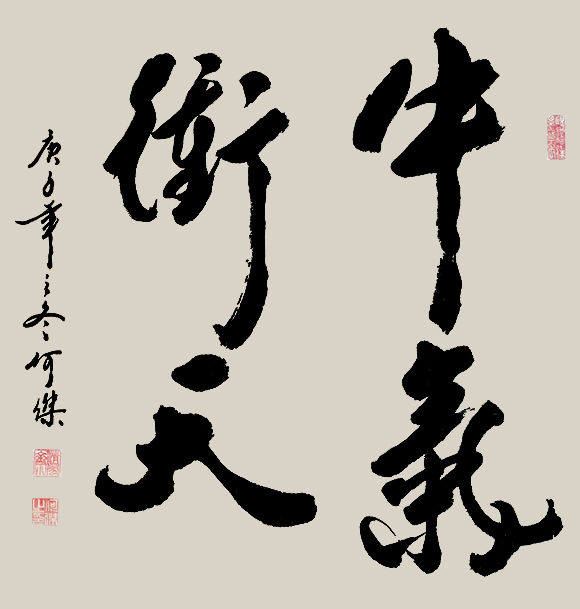 牛氣
衝天
庚子年之冬何傑